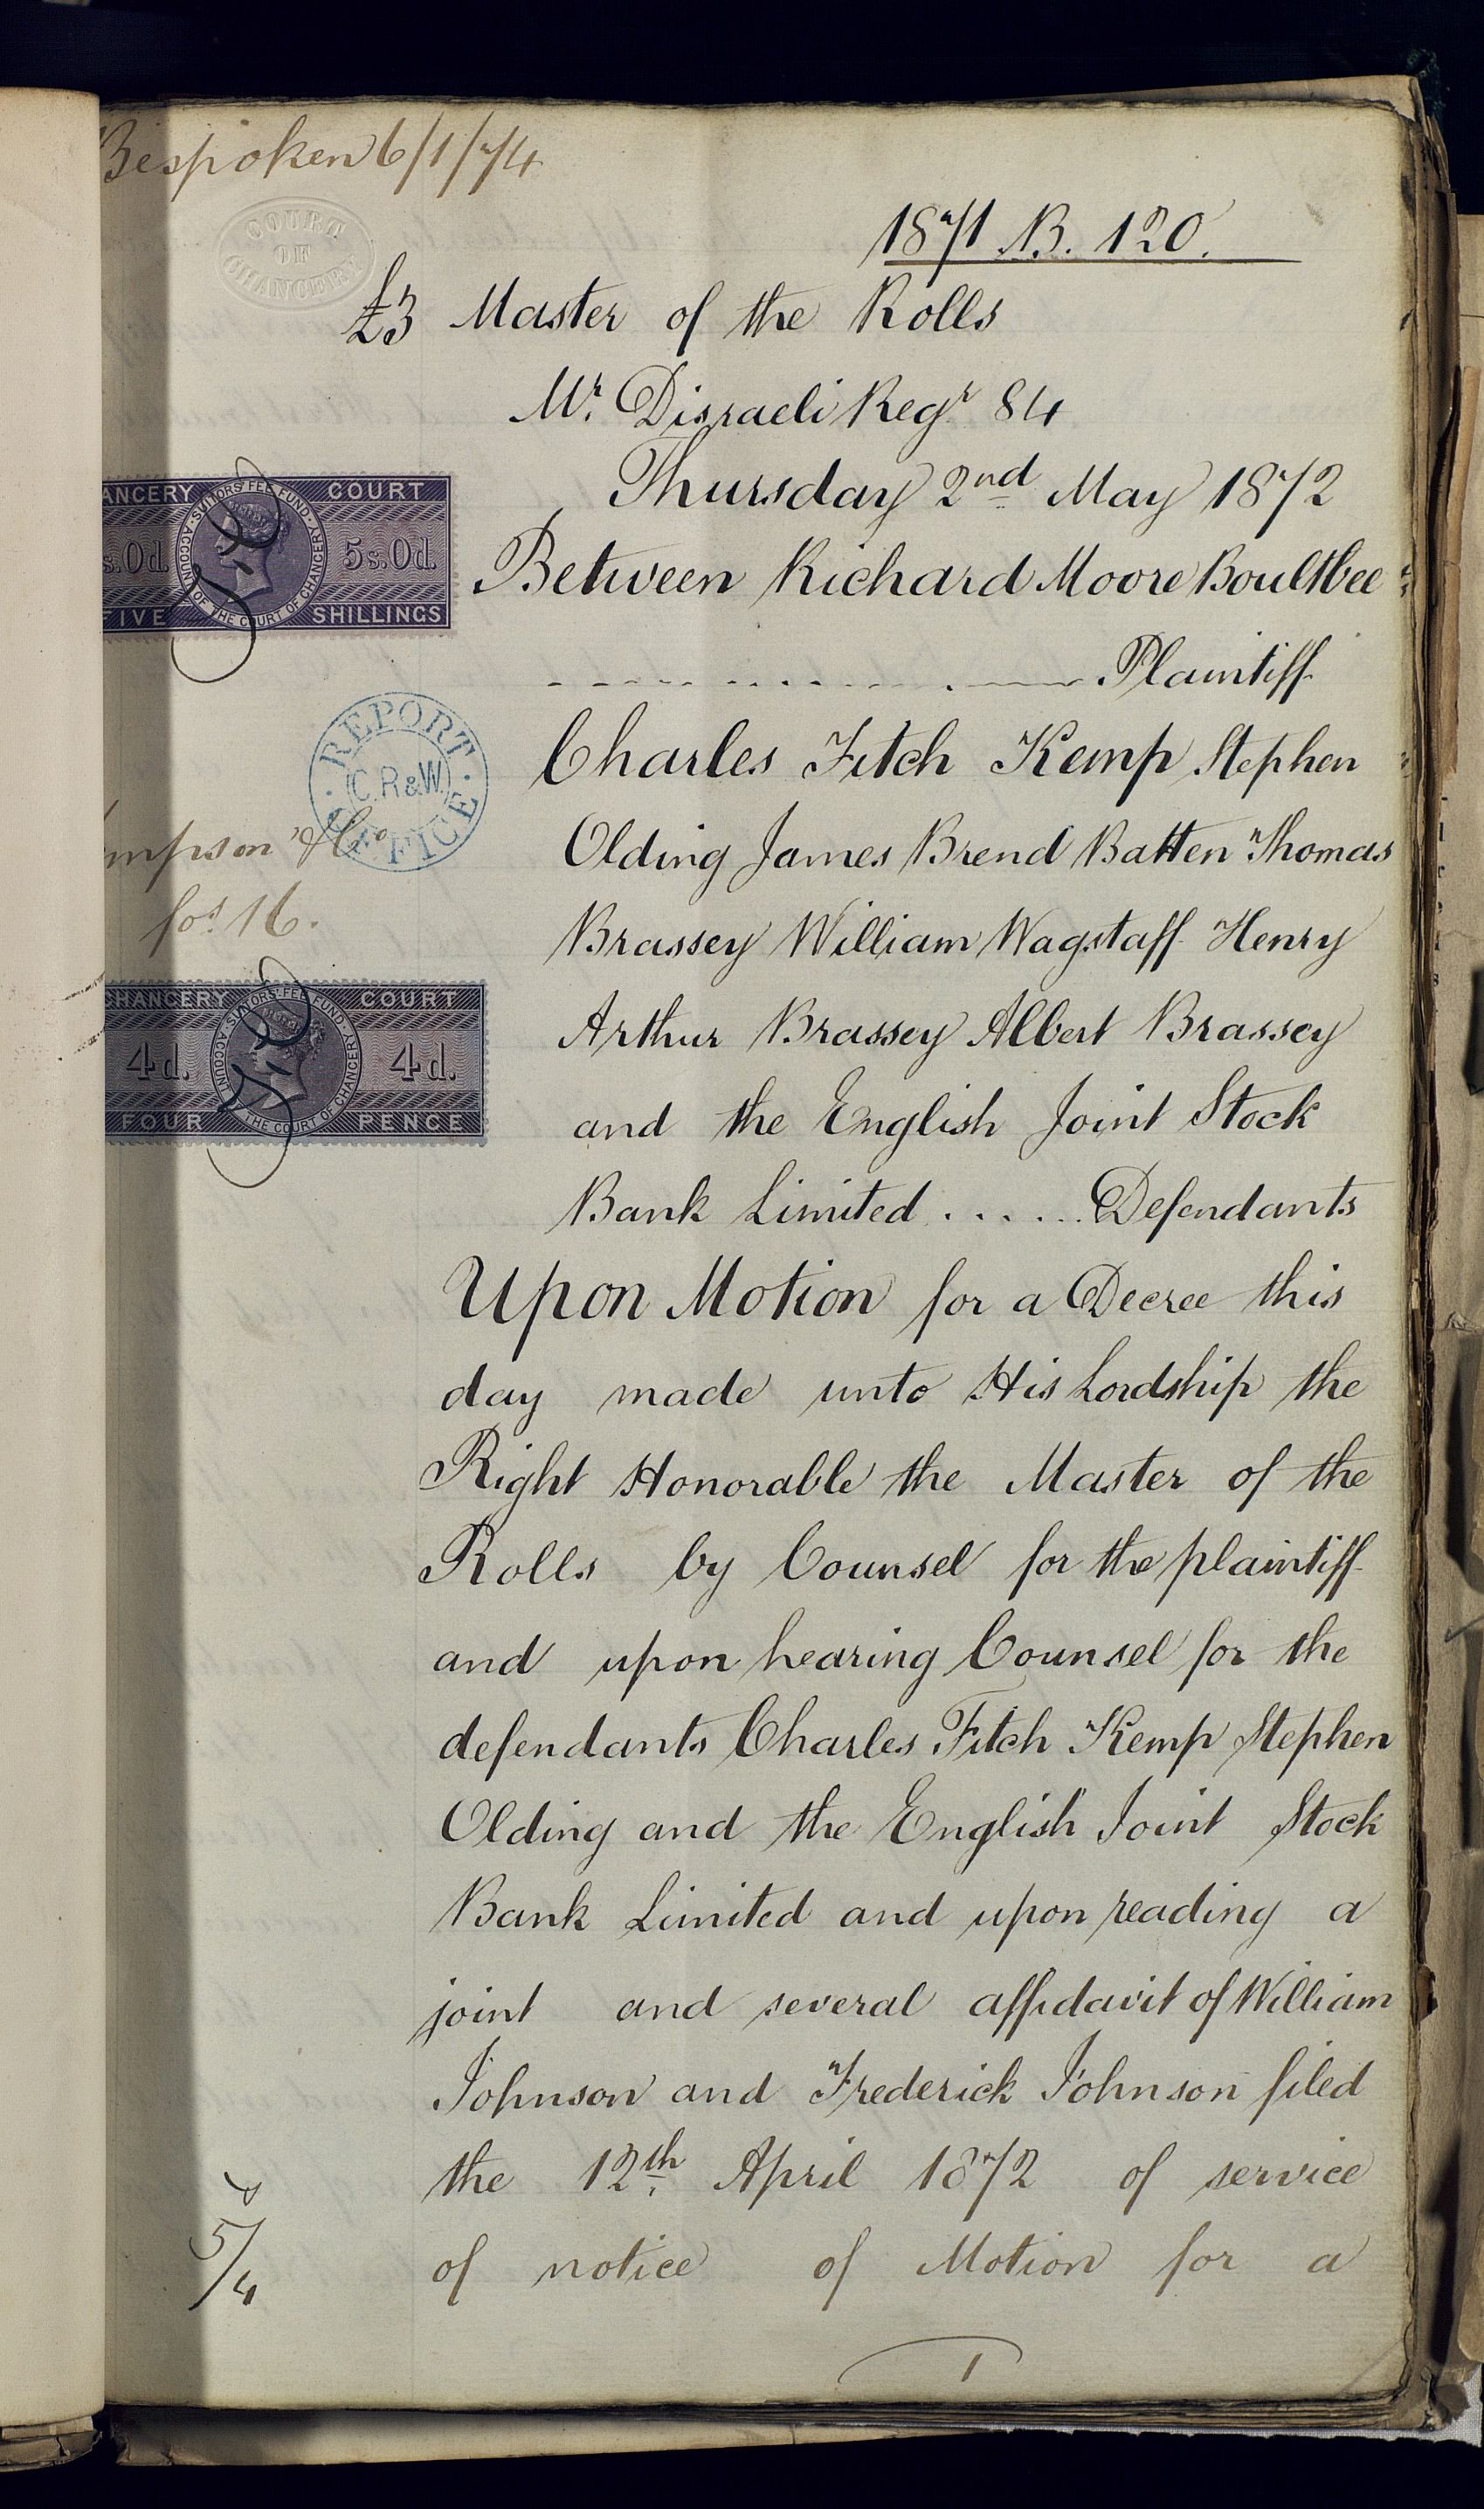 Bespoken 6/1/74
COURT
OF
CHANCERY
1871 B. 120.
£3 Master of the Rolls
Mr. Disraeli Regr 84
Thursday 2nd May 1872
ANCERY COURT
SUITORS' FEE FUND ACCOUNT OF THE COURT OF CHANCERY
s.0d. 5s.0d.
FIVE SHILLINGS
Between Richard Moore Boultbee
Plaintiff
REPORT OFFICE
C.R&W.
Charles Fitch Kemp Stephen
Olding James Brend Batten Thomas
mpson & Co
fos. 16.
Brassey William Wagstaff Henry
CHANCERY COURT
SUITORS' FEE FUND ACCOUNT OF THE COURT OF CHANCERY
4d. 4d.
FOUR PENCE
Arthur Brassey Albert Brassey
and the English Joint Stock
Bank Limited ...... Defendants
Upon Motion for a Decree this
day made unto His Lordship the
Right Honorable the Master of the
Rolls by Counsel for the plaintiff
and upon hearing Counsel for the
defendants Charles Fitch Kemp Stephen
Olding and the English Joint Stock
Bank Limited and upon reading a
joint and several affidavit of William
Johnson and Frederick Johnson filed
the 12th. April 1872 of service
5/4
of notice of Motion for a
1